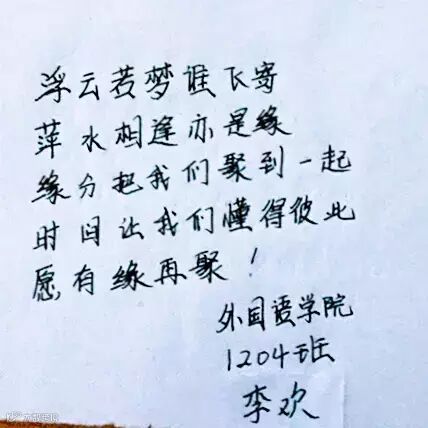 浮云若梦谁飞寄
萍水相逢亦是缘
缘分把我们聚到一起
时间让我们懂得彼此
愿有缘再聚!
外国语学院
1204班
李欢